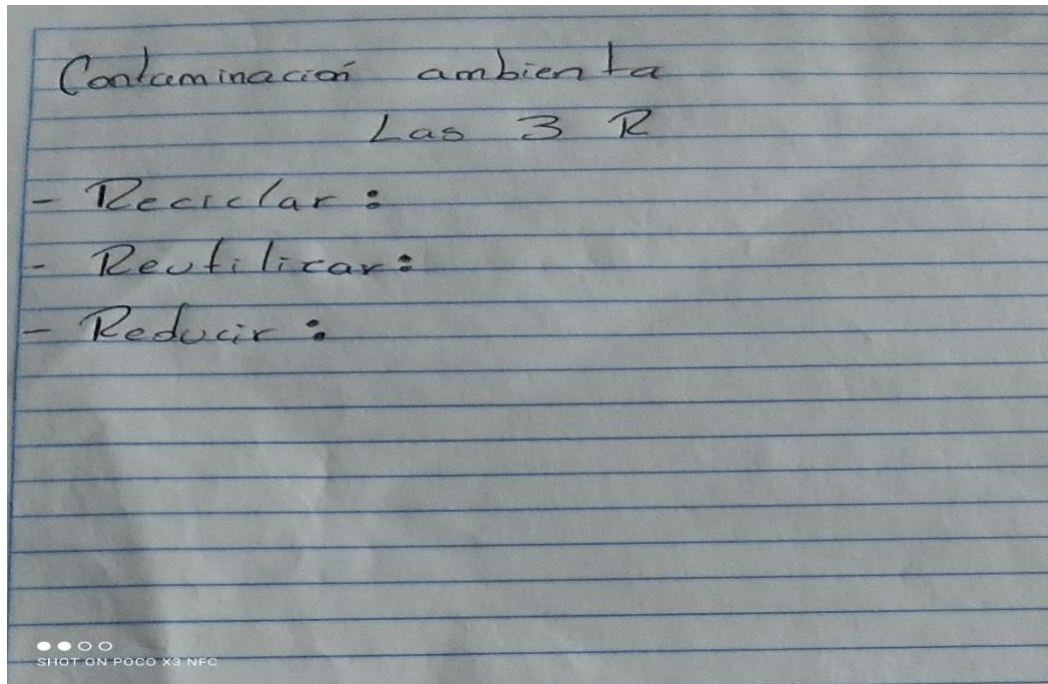 Contaminación ambienta
Las 3 R
- Reciclar:
- Reutilizar:
- Reducir:
SHOT ON POCO X3 NFC